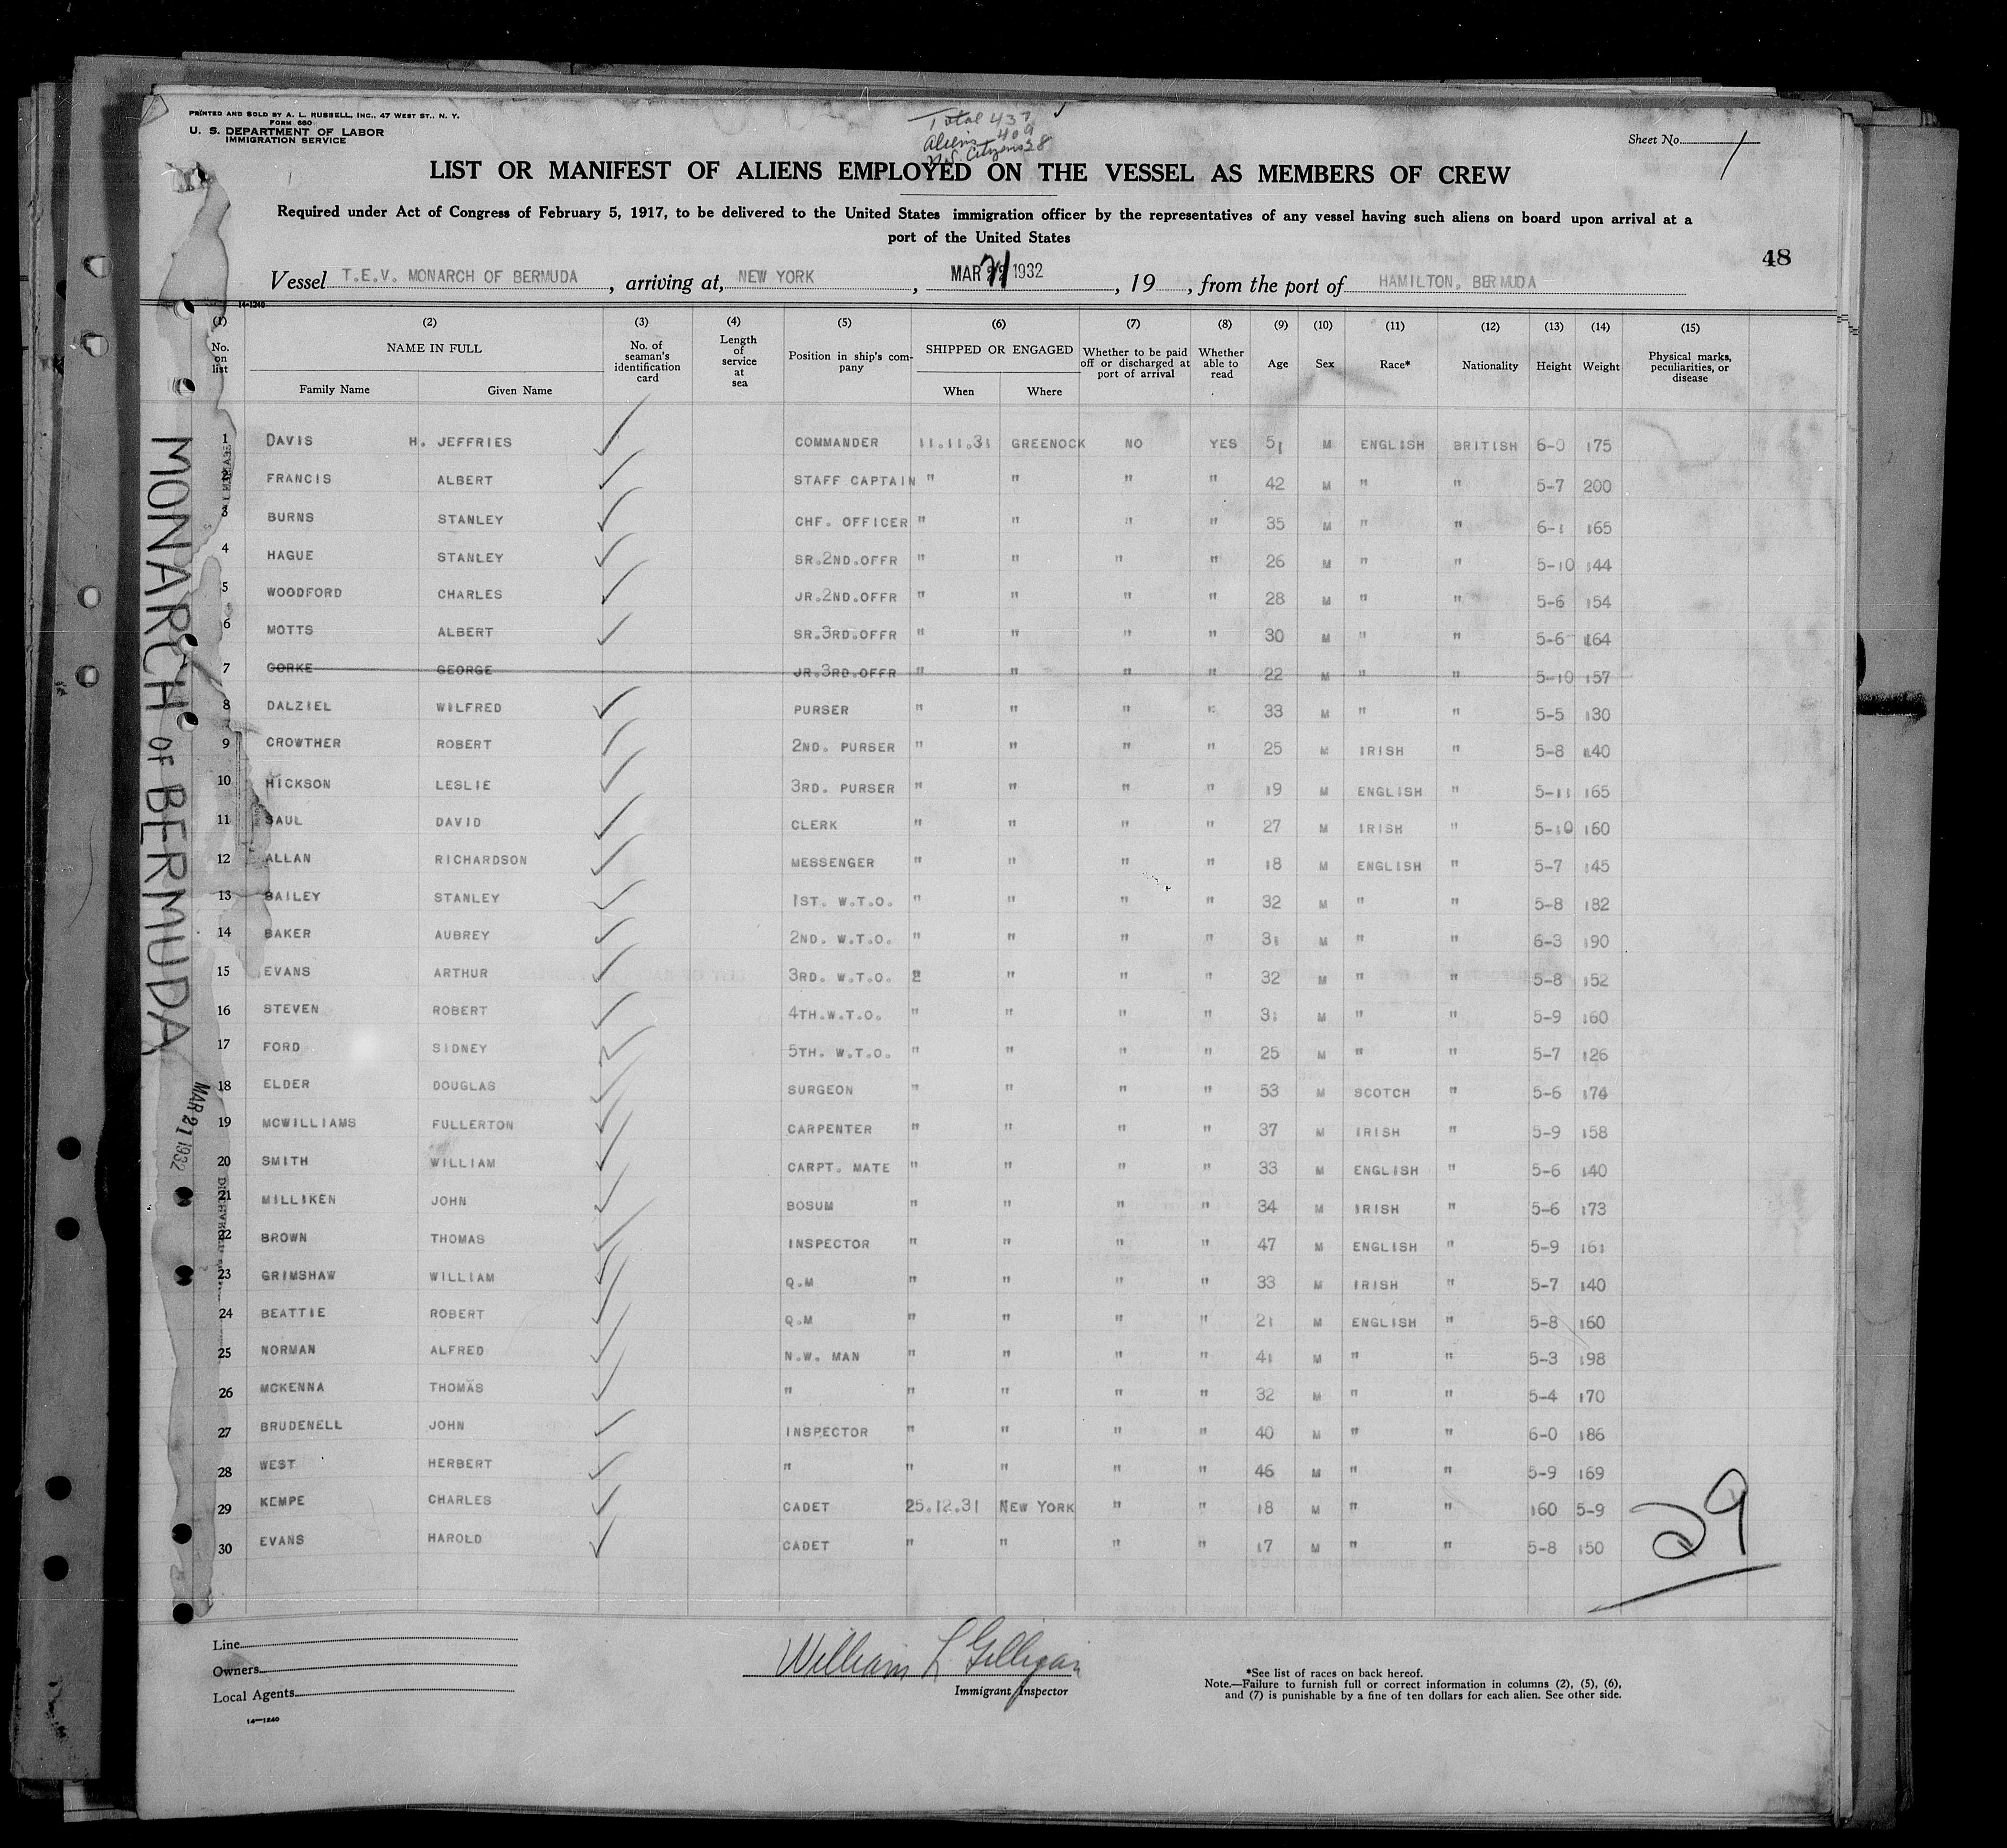 PRINTED AND SOLD BY A. L. RUSSELL, INC., 47 WEST ST., N. Y.
FORM 680
U. S. DEPARTMENT OF LABOR
IMMIGRATION SERVICE
Total 437
Aliens 409
U.S. Citizens 28
Sheet No. 1
LIST OR MANIFEST OF ALIENS EMPLOYED ON THE VESSEL AS MEMBERS OF CREW
Required under Act of Congress of February 5, 1917, to be delivered to the United States immigration officer by the representatives of any vessel having such aliens on board upon arrival at a
port of the United States
48
Vessel T.E.V. MONARCH OF BERMUDA, arriving at, NEW YORK, MAR 21 1932, 19 , from the port of HAMILTON, BERMUDA
14-1240
(1) (2) (3) (4) (5) (6) (7) (8) (9) (10) (11) (12) (13) (14) (15)
No. on list NAME IN FULL Family Name Given Name No. of seaman's identification card Length of service at sea Position in ship's company SHIPPED OR ENGAGED When Where Whether to be paid off or discharged at port of arrival Whether able to read Age Sex Race* Nationality Height Weight Physical marks, peculiarities, or disease
1 DAVIS H. JEFFRIES COMMANDER 11.11.31 GREENOCK NO YES 51 M ENGLISH BRITISH 6-0 175
2 FRANCIS ALBERT STAFF CAPTAIN " " " " 42 M " " 5-7 200
3 BURNS STANLEY CHF. OFFICER " " " " 35 M " " 6-1 165
4 HAGUE STANLEY SR.2ND.OFFR " " " " 26 M " " 5-10 144
5 WOODFORD CHARLES JR.2ND.OFFR " " " " 28 M " " 5-6 154
6 MOTTS ALBERT SR.3RD.OFFR " " " " 30 M " " 5-6 164
7 GORKE GEORGE JR.3RD.OFFR " " " " 22 M " " 5-10 157
8 DALZIEL WILFRED PURSER " " " " 33 M " " 5-5 130
9 CROWTHER ROBERT 2ND. PURSER " " " " 25 M IRISH " 5-8 140
10 HICKSON LESLIE 3RD. PURSER " " " " 19 M ENGLISH " 5-11 165
11 SAUL DAVID CLERK " " " " 27 M IRISH " 5-10 160
12 ALLAN RICHARDSON MESSENGER " " " " 18 M ENGLISH " 5-7 145
13 BAILEY STANLEY 1ST. W.T.O. " " " " 32 M " " 5-8 182
14 BAKER AUBREY 2ND. W.T.O. " " " " 31 M " " 6-3 190
15 EVANS ARTHUR 3RD. W.T.O. " " " " 32 M " " 5-8 152
16 STEVEN ROBERT 4TH.W.T.O. " " " " 31 M " " 5-9 160
17 FORD SIDNEY 5TH. W.T.O. " " " " 25 M " " 5-7 126
18 ELDER DOUGLAS SURGEON " " " " 53 M SCOTCH " 5-6 174
19 MCWILLIAMS FULLERTON CARPENTER " " " " 37 M IRISH " 5-9 158
20 SMITH WILLIAM CARPT. MATE " " " " 33 M ENGLISH " 5-6 140
21 MILLIKEN JOHN BOSUM " " " " 34 M IRISH " 5-6 173
22 BROWN THOMAS INSPECTOR " " " " 47 M ENGLISH " 5-9 161
23 GRIMSHAW WILLIAM Q.M " " " " 33 M IRISH " 5-7 140
24 BEATTIE ROBERT Q.M " " " " 21 M ENGLISH " 5-8 160
25 NORMAN ALFRED N.W. MAN " " " " 41 M " " 5-3 198
26 MCKENNA THOMAS " " " " " 32 M " " 5-4 170
27 BRUDENELL JOHN INSPECTOR " " " " 40 M " " 6-0 186
28 WEST HERBERT " " " " " 46 M " " 5-9 169
29 KEMPE CHARLES CADET 25.12.31 NEW YORK " " 18 M " " 160 5-9
30 EVANS HAROLD CADET " " " " 17 M " " 5-8 150
29
MONARCH OF BERMUDA
MAR 21 1932
Line
Owners
Local Agents
14-1240
William L Gilligan
Immigrant Inspector
*See list of races on back hereof.
Note.—Failure to furnish full or correct information in columns (2), (5), (6),
and (7) is punishable by a fine of ten dollars for each alien. See other side.